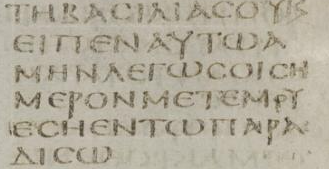 ΤΗΒΑCΙΛΙΑCΟΥΚ
ΕΙΠΕΝΑΥΤΩΑ
ΜΗΝΛΕΓΩCΟΙCΗ
ΜΕΡΟΝΜΕΤΕΜΟΥ
ΕCΗΕΝΤΩΠΑΡΑ
ΔΙCΩ